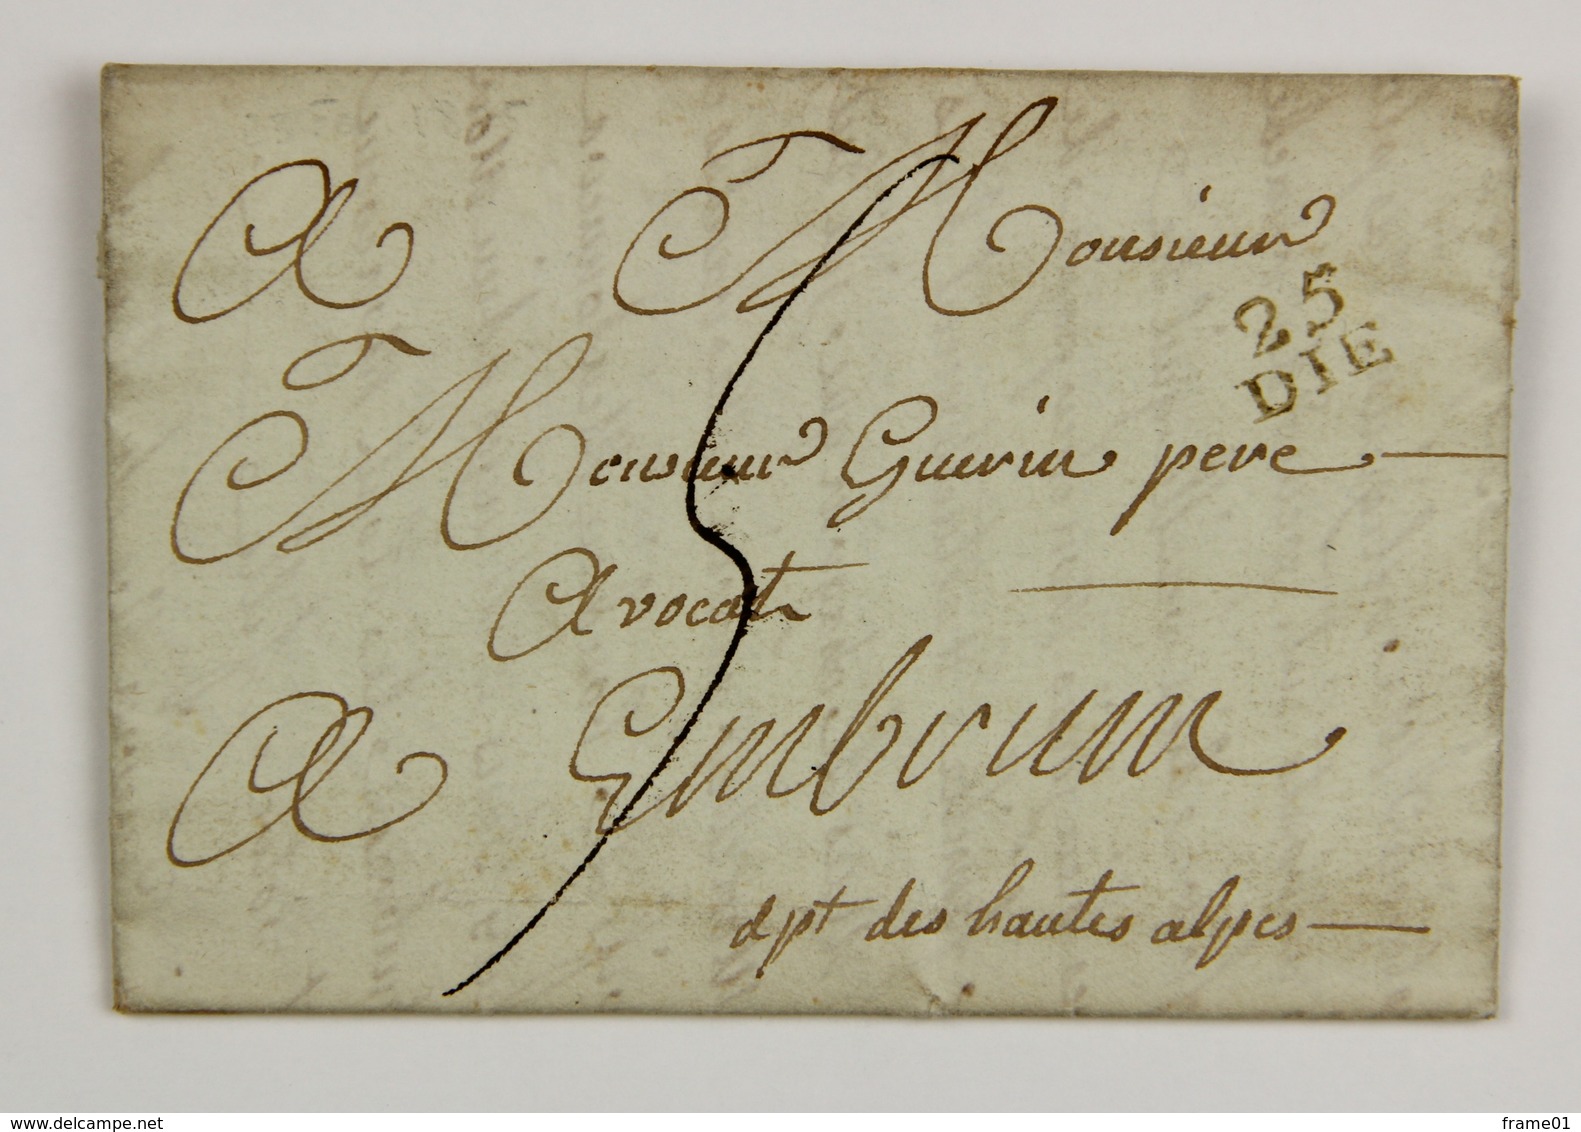 A Monsieur
25
DIE
Monsieur Guerin pere
Avocat
5
A Embrun
dpt des hautes alpes
www.delcampe.net
frame01